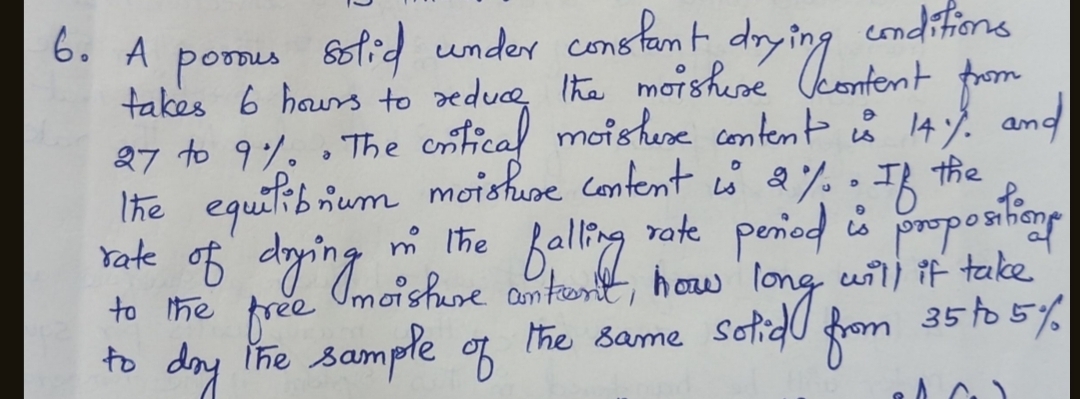 6. A porous solid under constant drying conditions
takes 6 hours to reduce the moisture content from
27 to 9%. The critical moisture content is 14% and
the equilibrium moisture content is 2%. If the
rate of drying in the falling rate period is propositional
to the free moisture content, how long will it take
to dry the sample of the same solid from 35 to 5%